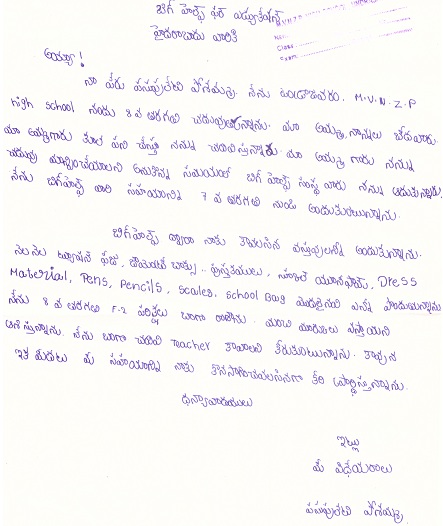 బిగ్ హెల్ప్ ఫర్ ఎడ్యుకేషన్
హైదరాబాదు వారికి
అయ్యా!
నా పేరు పసుపులేటి పోశమ్మ. నేను M.V.N.Z.P
high school నందు 8 వ తరగతి చదువుతున్నాను. మా అమ్మ, నాన్నలు బేదవారు.
మా అమ్మగారు కూలి పని చేస్తూ నన్ను చదివిస్తున్నారు. మా అమ్మ గారు నన్ను
చదువు మాన్పించేయాలని అనుకొన్న సమయంలో బిగ్ హెల్ప్ సంస్థ వారు నన్ను ఆదుకున్నారు.
నేను బిగ్‌హెల్ప్ వారి సహాయాన్ని 7 వ తరగతి నుండి అందుకుంటున్నాను.
బిగ్‌హెల్ప్ ద్వారా నాకు కావలసిన వస్తువులన్నీ అందుతున్నాను.
నెల నెల ట్యూషన్ ఫీజు, పుస్తకములు, స్కూల్ యూనిఫామ్, Dress
Material, Pens, Pencils, Scales, School Bag మొదలైనవి ఎన్నో పొందుతున్నాను
నేను 8 వ తరగతి F-2 పరీక్షలు బాగా రాశాను. మంచి మార్కులు వస్తాయని
ఆశిస్తున్నాను. నేను బాగా చదివి Teacher కావాలని కోరుకుంటున్నాను. కావున
ఇక ముందు మీ సహాయాన్ని నాకు కొనసాగించవలసినదిగా కోరి ప్రార్థిస్తున్నాను.
ధన్యవాదములు
ఇట్లు
మీ విధేయురాలు
పసుపులేటి పోశమ్మ